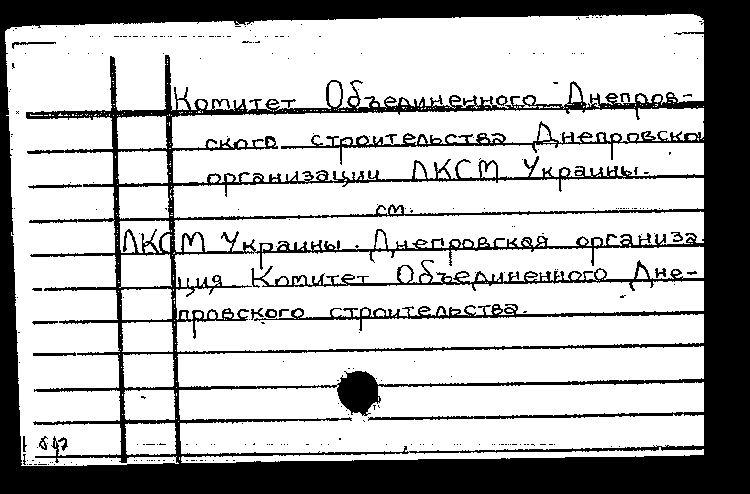 Комитет Объединенного Днепров-
ского строительства Днепровско
организации ЛКСМ Украины.
см.
ЛКСМ Украины. Днепровская организа
ция Комитет Объединенного Дне-
провского строительства.